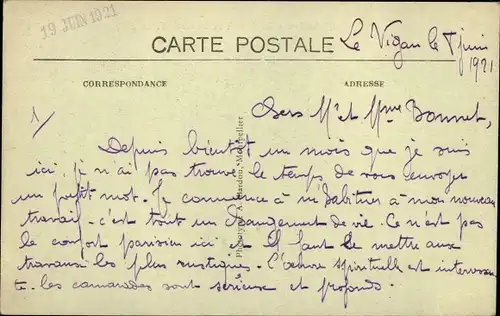 19 JUIN 1921
CARTE POSTALE
Le Vigan le 8 juin
1921
CORRESPONDANCE
ADRESSE
1/
Chers Mr et Mme Bonnet,
Depuis bientôt un mois que je suis
ici, je n'ai pas trouvé le temps de vous envoyer
un petit mot. Je commence à m'habituer à mon nouveau
travail - c'est tout un changement de vie. Ce n'est pas
le confort parisien ici. Il faut se mettre aux
travaux les plus rustiques. L'oeuvre spirituelle est interessan
te. les camarades sont sérieux et profonds.
Montpellier